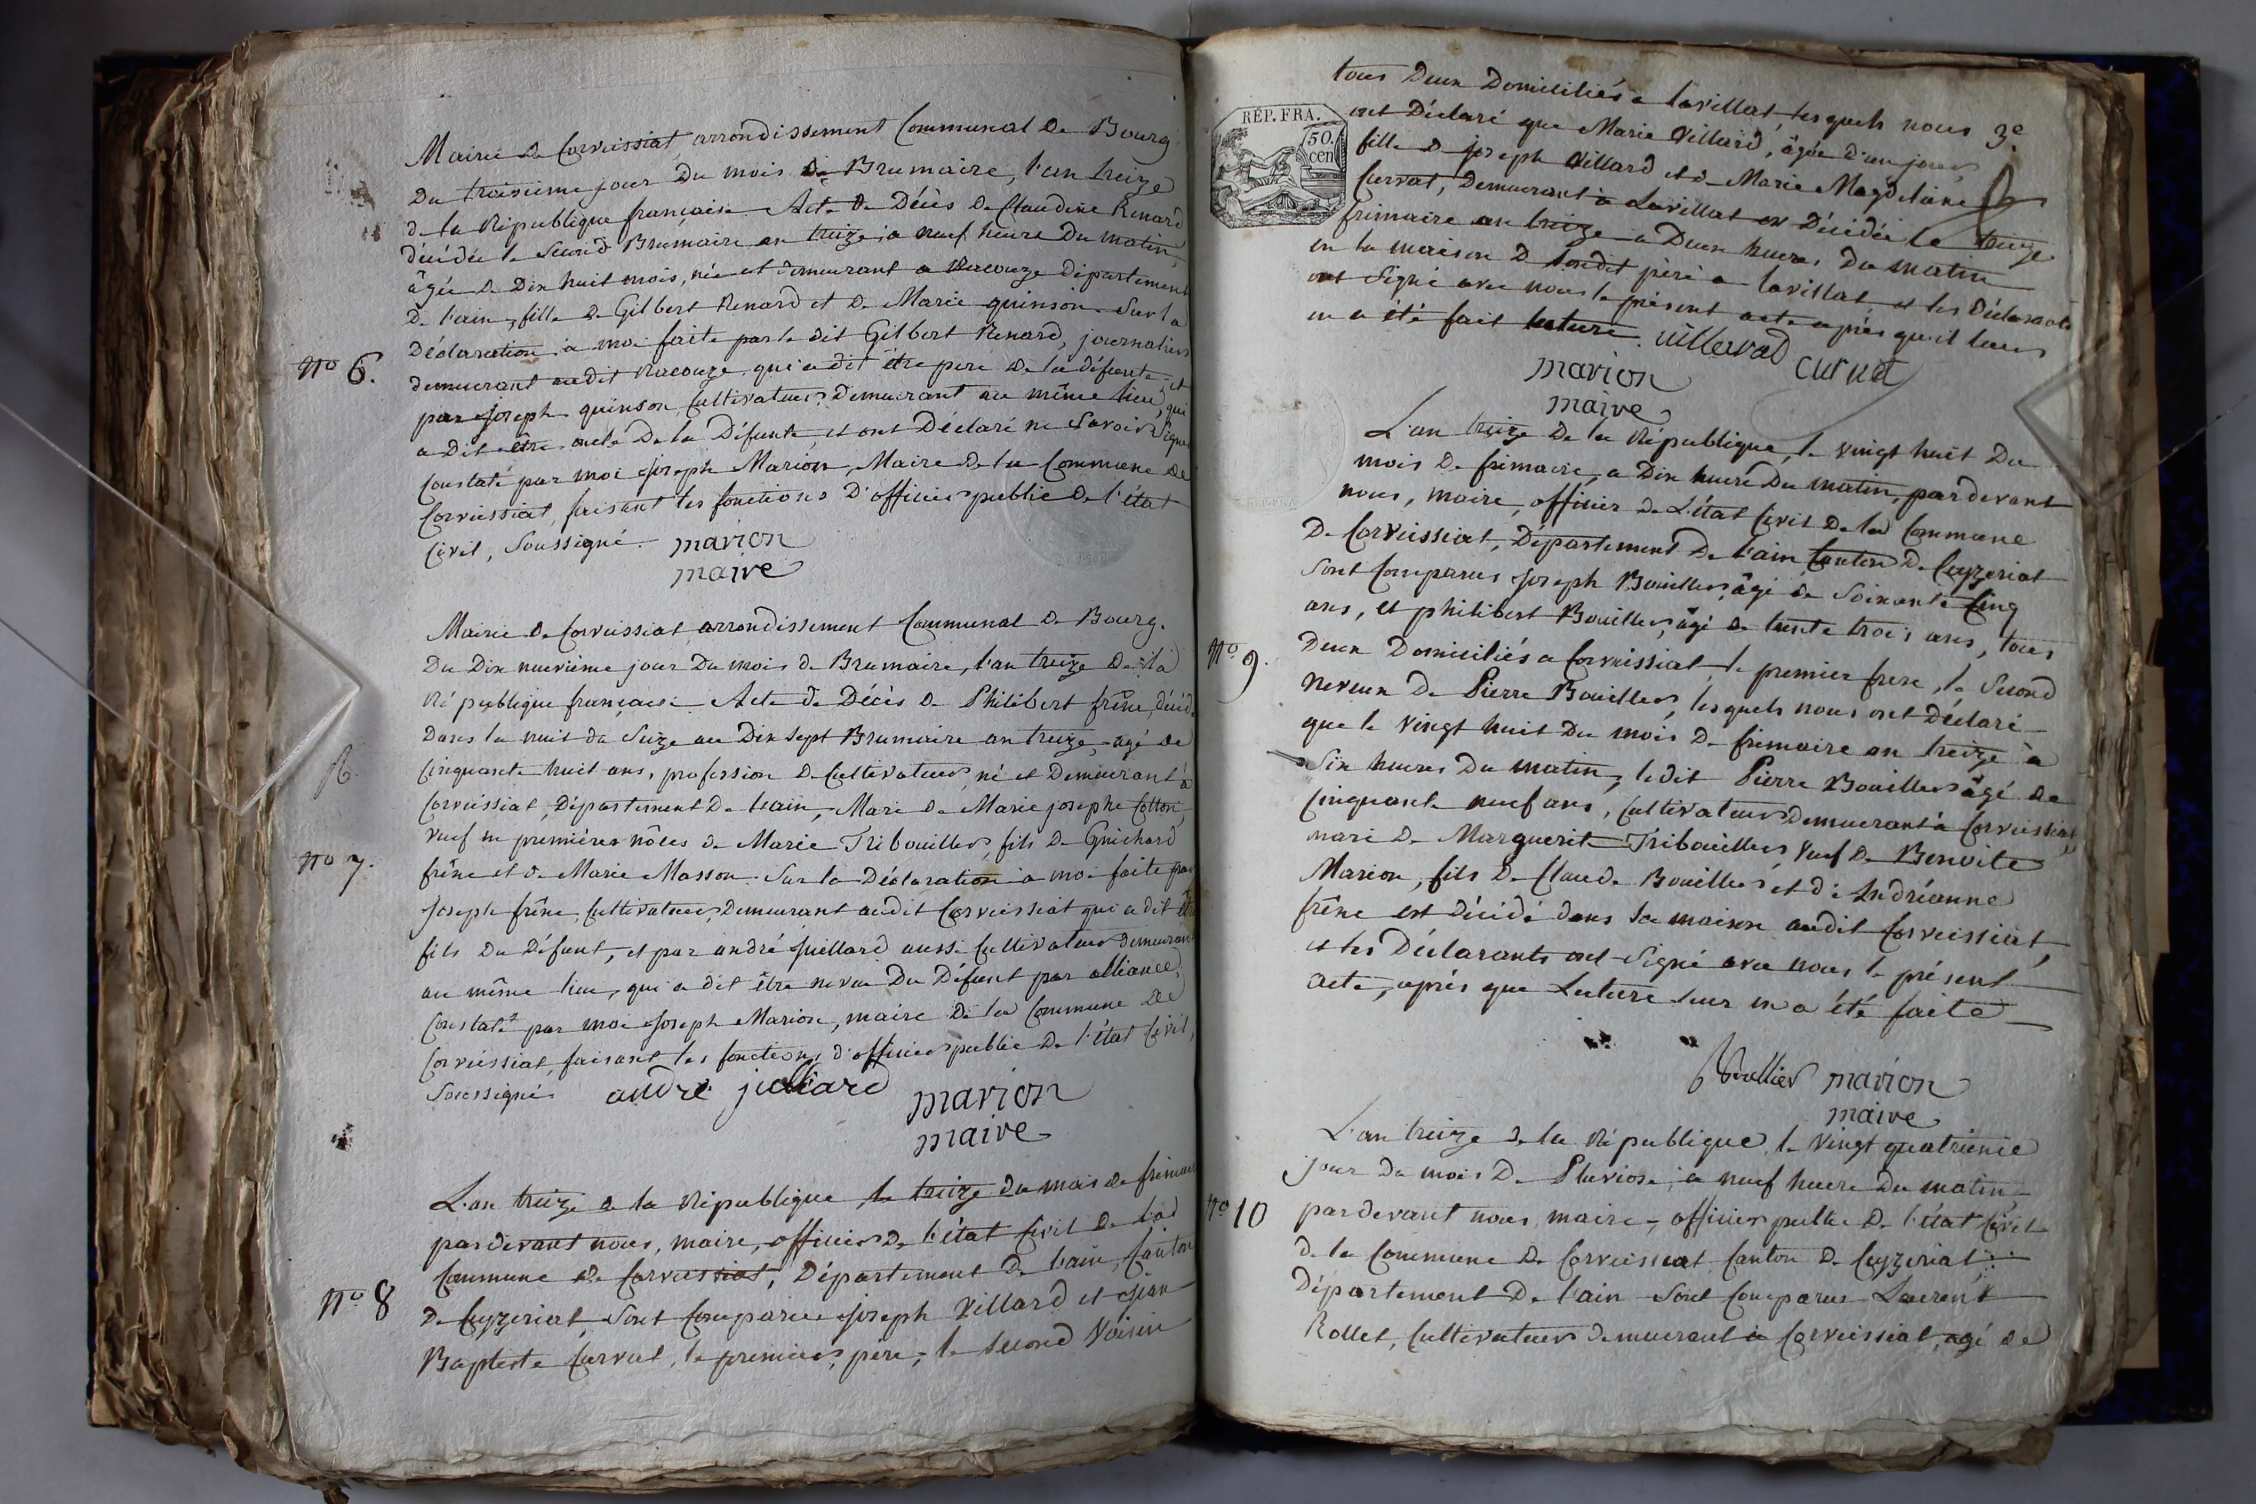 Mairie de Corveissiat arrondissement Communal de Bourg
Du troisieme jour du mois de Brumaire, l'an treize
de la République française Acte de Décès de Claudine Renard
décédée le Second Brumaire an treize, a neuf heure du matin,
âgée de Dix huit mois, née et demeurant a Racouze département
De l'ain, fille de Gilbert Renard et de Marie quinson. Sur la
Déclaration à moi faite par le dit Gilbert Renard, journalier
demeurant audit Racouze qui a dit être pere de la défunte, et
par Joseph quinson Cultivateur, demeurant au même lieu, qui
a dit être oncle De la Défunte, et ont Déclaré ne Savoir Signer
Constaté par moi Joseph Marion, Maire de la Commune de
Corveissiat, faisant les fonctions D'officier public De l'état
Civil, Soussigné. marion
maire
No 6.
Mairie de Corveissiat arrondissement Communal de Bourg.
Du Dix neuvième jour Du mois de Brumaire, l'an treize de la
République française Acte de Décès de Philibert frêne, décédé
Dans la nuit du Seize au Dix Sept Brumaire an treize, agé de
Cinquante huit ans, profession de Cultivateur, né et Demeurant à
Corveissiat, Département De l'ain, Mari de Marie josephe Cotton,
veuf en premières nôces de Marie Tribouiller, fils de Guichard
frêne et de Marie Masson. Sur la Déclaration à moi faite par
Joseph frêne Cultivateur, Demeurant audit Corveissiat qui a dit être
fils Du Défunt, et par andré juillard aussi Cultivateur demeurant
au même lieu, qui a dit être neveu Du Défunt par alliance,
Constaté par moi Joseph Marion, maire de la Commune de
Corveissiat, faisant les fonctions d'officier public De l'état Civil,
Soussigné. andré juillard marion
maire
No 7.
L'an treize de la République le treize du mois de frimaire
pardevant nous, maire, officier de l'état Civil de la
Commune de Corveissiat, Département de l'ain, Canton
de Ceyzeriat, Sont Comparus Joseph Villard et Jean
Baptiste Curvat, le premier, père, le Second Voisin
No 8
tous Deux Domiciliés a Lavillat, lesquels nous
3e
ont Déclaré que Marie Villard, âgée d'un jour,
fille de Joseph Villard et de Marie Magdelaine
Curvat, Demeurant a Lavillat est Décédée le treize
frimaire an treize a Deux heures du matin
en la maison de Sondit père a Lavillat et les Déclarants
ont Signé avec nous le présent acte après qu'il leur
en a été fait lecture. Curvat
marion
maire
RÉP. FRA.
50.
cen
L'an treize de la République, le vingt huit Du
mois de frimaire, a Dix heure Du matin, pardevant
nous, maire, officier de L'état Civil de la Commune
De Corveissiat, Département De l'ain Canton de Ceyzeriat
Sont Comparus Joseph Bouiller, âgé de Soixante Cinq
ans, et philibert Bouiller, âgé de trente trois ans, tous
Deux Domiciliés a Corveissiat, le premier frere, le Second
Neveux De Pierre Bouiller, lesquels nous ont Déclaré
que le vingt huit Du mois De frimaire an treize à
Six heures Du matin, le dit Pierre Bouiller âgé de
Cinquante neuf ans, Cultivateur demeurant à Corveissiat,
mari De Marguerite Tribouiller, Veuf de Benoite
Marion, fils De Claude Bouiller et de Andréanne
frêne est Décédé dans sa maison audit Corveissiat,
et les Déclarants ont Signé avec nous le présent
acte, après que Lecture leur en a été faite
Boullier marion
maire
No 9.
L'an treize de la République, le Vingt quatrieme
jour du mois De Pluviose, a neuf heure du matin
pardevant nous, maire, officier public De l'état Civil
de la Commune De Corveissiat Canton De Ceyzeriat
Département De l'ain Sont Comparus Laurent
Rollet, Cultivateur demeurant à Corveissiat, agé de
No 10